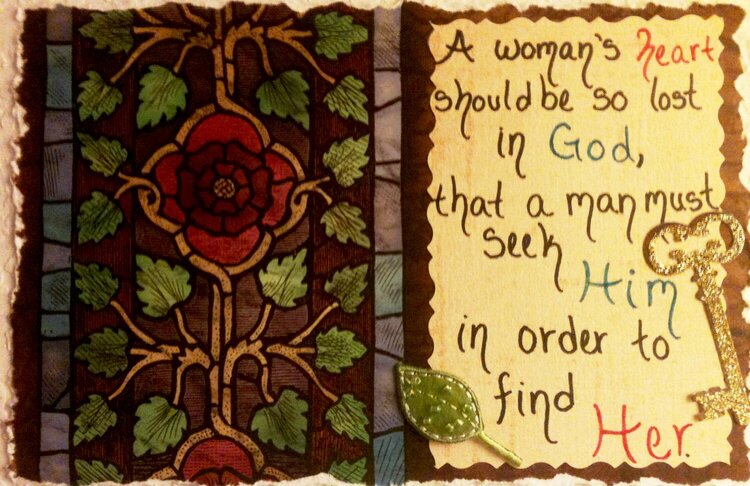 A woman's heart
should be so lost
in God,
that a man must
seek
Him
in order to
find
Her.